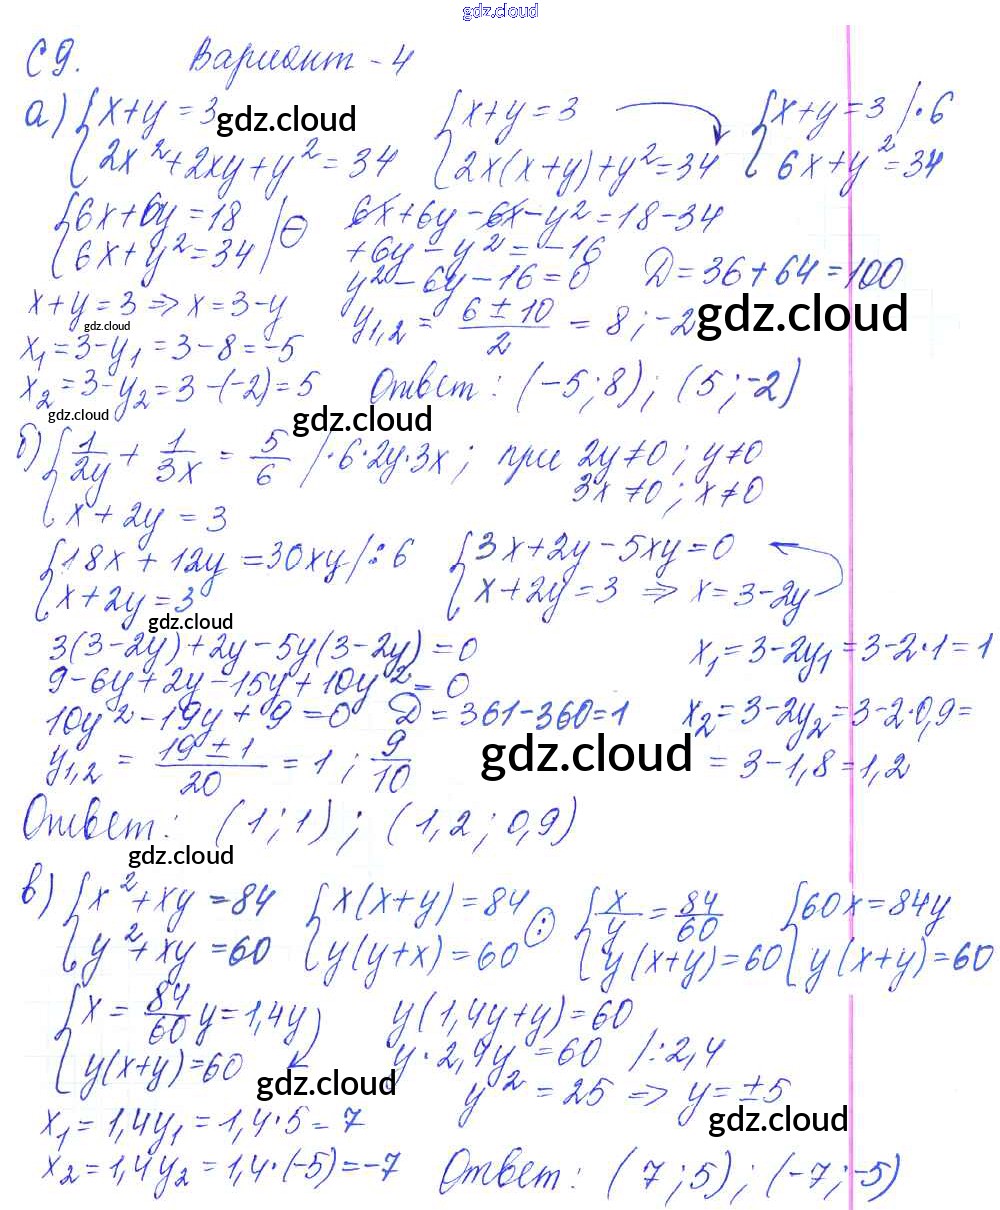 gdz.cloud
С 9. Вариант - 4
а) { x+y = 3 gdz.cloud { x+y = 3 { x+y = 3 /·6
2x² + 2xy + y² = 34 2x(x+y)+y² = 34 6x+y² = 34
{ 6x+6y = 18 /⊖ 6x+6y-6x-y² = 18-34
6x+y² = 34 +6y-y² = -16
y²-6y-16=0 Д = 36+64=100
x+y = 3 => x = 3-y y₁,₂ = (6 ± 10)/2 = 8; -2 gdz.cloud
gdz.cloud
x₁ = 3-y₁ = 3-8 = -5
x₂ = 3-y₂ = 3-(-2) = 5 Ответ: (-5; 8); (5; -2)
gdz.cloud gdz.cloud
б) { 1/2y + 1/3x = 5/6 /·6·2y·3x; при 2y≠0; y≠0
3x≠0; x≠0
x + 2y = 3
{ 18x + 12y = 30xy /:6 { 3x+2y-5xy=0
x+2y = 3 x+2y = 3 => x = 3-2y
gdz.cloud
3(3-2y)+2y-5y(3-2y)=0 x₁ = 3-2y₁ = 3-2·1 = 1
9-6y+2y-15y+10y² = 0
10y²-19y+9=0 Д = 361-360=1 x₂ = 3-2y₂ = 3-2·0,9 =
y₁,₂ = (19 ± 1)/20 = 1; 9/10 gdz.cloud = 3-1,8 = 1,2
Ответ: (1; 1); (1,2; 0,9)
gdz.cloud
в) { x²+xy = 84 { x(x+y) = 84 { x/y = 84/60 { 60x = 84y
y²+xy = 60 y(y+x) = 60 (:) y(x+y) = 60 y(x+y) = 60
{ x = 84/60 y = 1,4y y(1,4y+y) = 60
y(x+y) = 60 y·2,4y = 60 /:2,4
gdz.cloud y² = 25 => y = ±5
x₁ = 1,4y₁ = 1,4·5 = 7 gdz.cloud
x₂ = 1,4y₂ = 1,4·(-5) = -7 Ответ: (7; 5); (-7; -5)